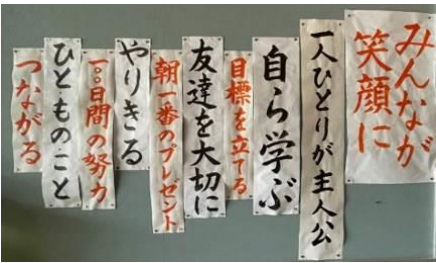 みんなが
笑顔に
一人ひとりが主人公
自ら学ぶ
目標を立てる
友達を大切に
朝一番のプレゼント
やりきる
一〇〇日間の努力
ひと・もの・こと
つながる